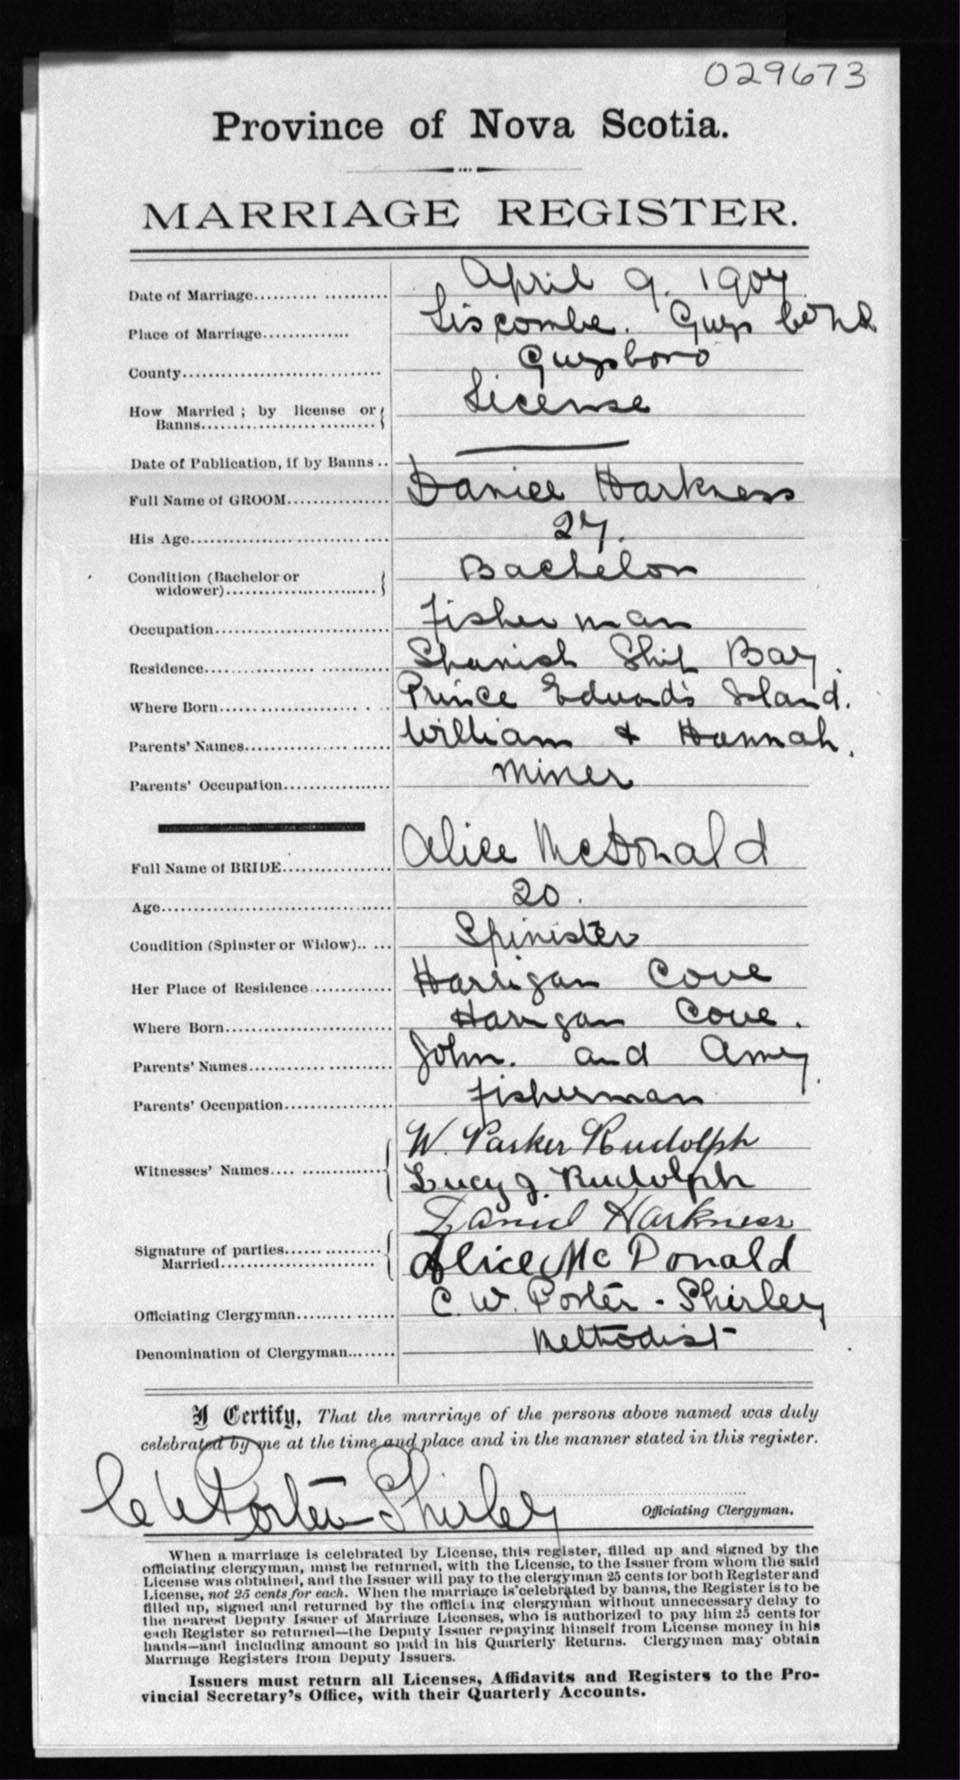 029673
Province of Nova Scotia.
MARRIAGE REGISTER.
Date of Marriage.................... April 9. 1907
Place of Marriage............. Liscombe. Guys
County............................. Guysboro
How Married ; by license or
Banns......................... License
Date of Publication, if by Banns .. ———
Full Name of GROOM............... Daniel Harkness
His Age............................. 27.
Condition (Bachelor or
widower)...................... Bachelor
Occupation......................... Fisherman
Residence.......................... Spanish Ship Bay.
Where Born........................ Prince Edward's Island.
Parents' Names..................... William & Hannah.
Parents' Occupation................ Miner
Full Name of BRIDE................. Alice McDonald
Age................................ 20.
Condition (Spinster or Widow)..... Spinister
Her Place of Residence............ Harrigan Cove
Where Born........................ Harigan Cove.
Parents' Names..................... John. and Amy
Parents' Occupation................ Fisherman
W. Parker Rudolph
Witnesses' Names.................. Lucy J. Rudolph
Daniel Harkness
Signature of parties...............
Married....................... Alice McDonald
Officiating Clergyman.............. C. W. Porter - Shirley
Denomination of Clergyman........ Methodist
I Certify, That the marriage of the persons above named was duly
celebrated by me at the time and place and in the manner stated in this register.
C W Porter-Shirley
Officiating Clergyman.
When a marriage is celebrated by License, this register, filled up and signed by the
officiating clergyman, must be returned, with the License, to the Issuer from whom the said
License was obtained, and the Issuer will pay to the clergyman 25 cents for both Register and
License, not 25 cents for each. When the marriage is celebrated by banns, the Register is to be
filled up, signed and returned by the officia ing clergyman without unnecessary delay to
the nearest Deputy Issuer of Marriage Licenses, who is authorized to pay him 25 cents for
each Register so returned—the Deputy Issuer repaying himself from License money in his
hands—and including amount so paid in his Quarterly Returns. Clergymen may obtain
Marriage Registers from Deputy Issuers.
Issuers must return all Licenses, Affidavits and Registers to the Pro-
vincial Secretary's Office, with their Quarterly Accounts.